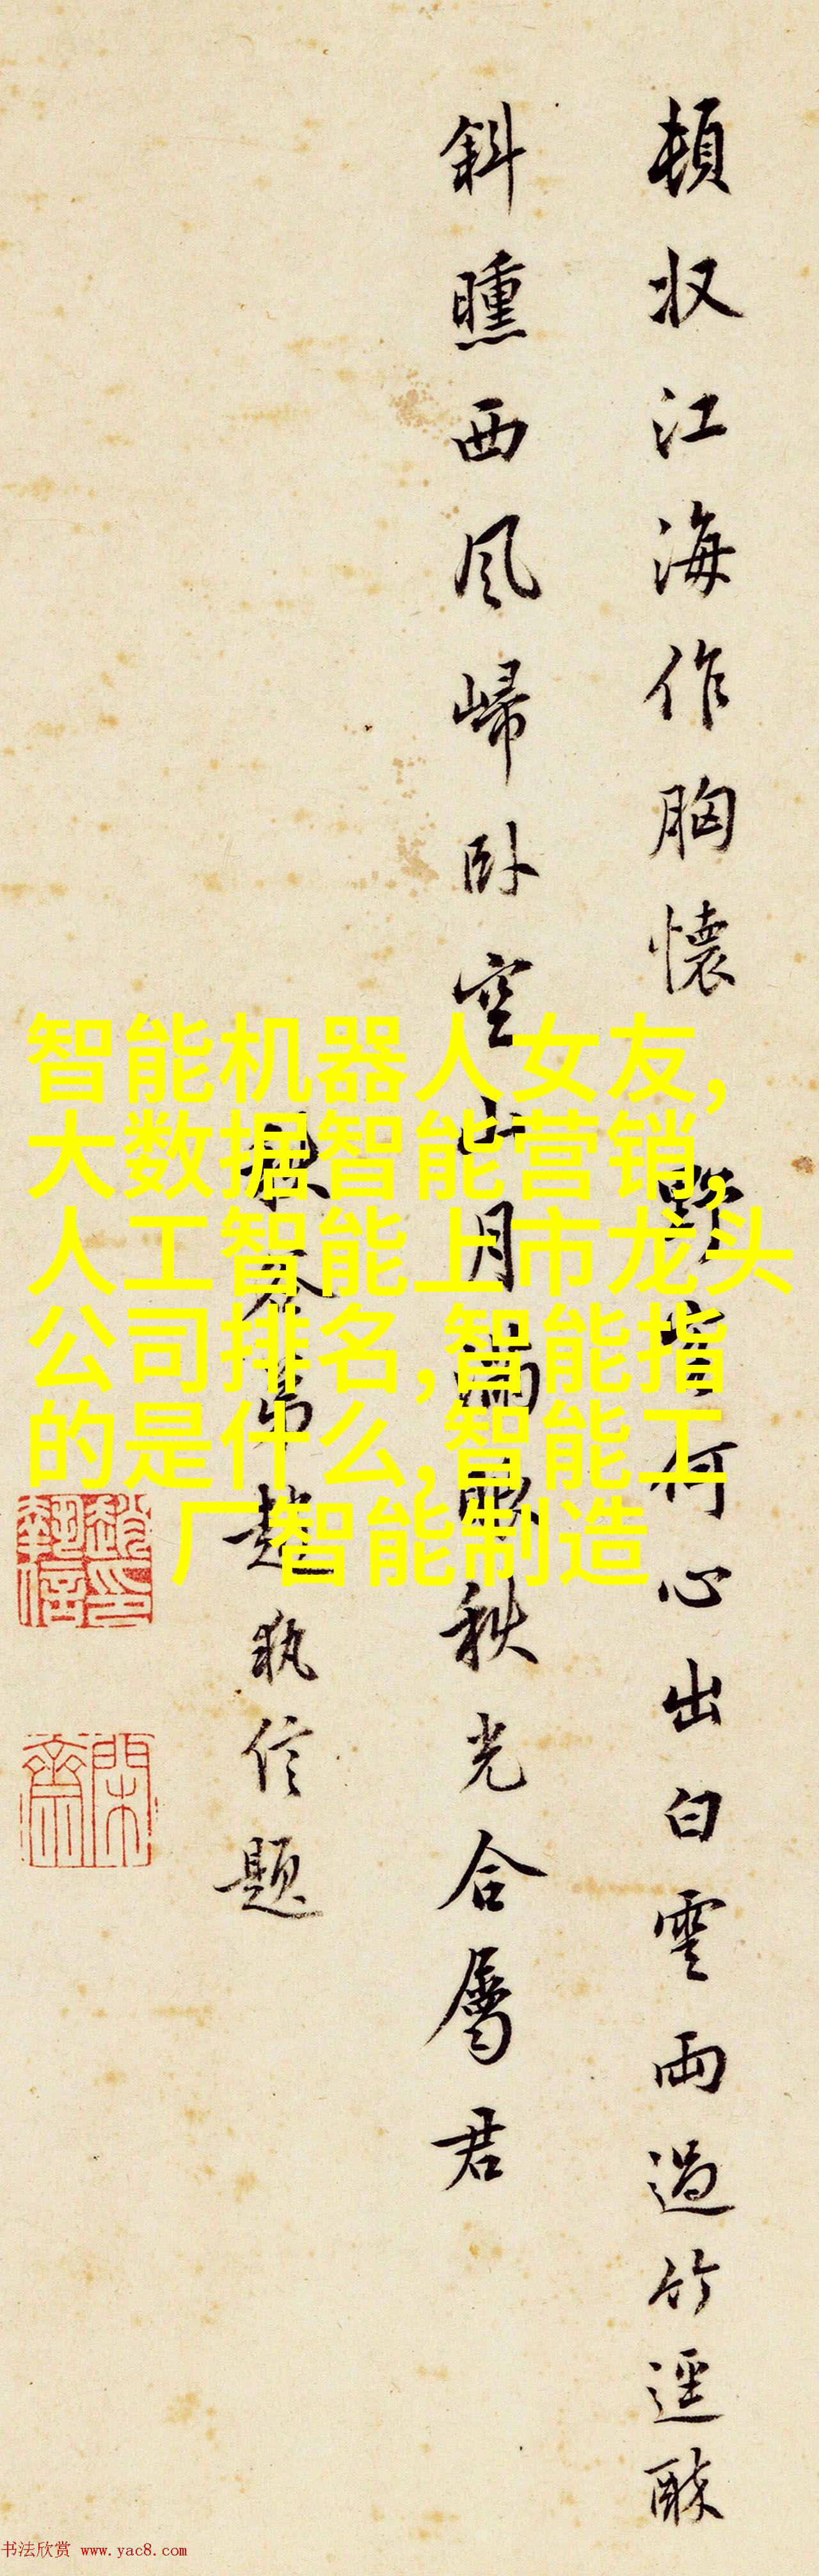 頓収江海作胸懷 野何心出白雲雨過竹逕醉
斜曛西風歸卧空山月滿秋光合屬君
趙執信題
智能机器人女友,
大数据智能营销,
人工智能上市龙头
公司排名,智能指
的是什么,智能工
厂智能制造
书法欣赏 www.yac8.com